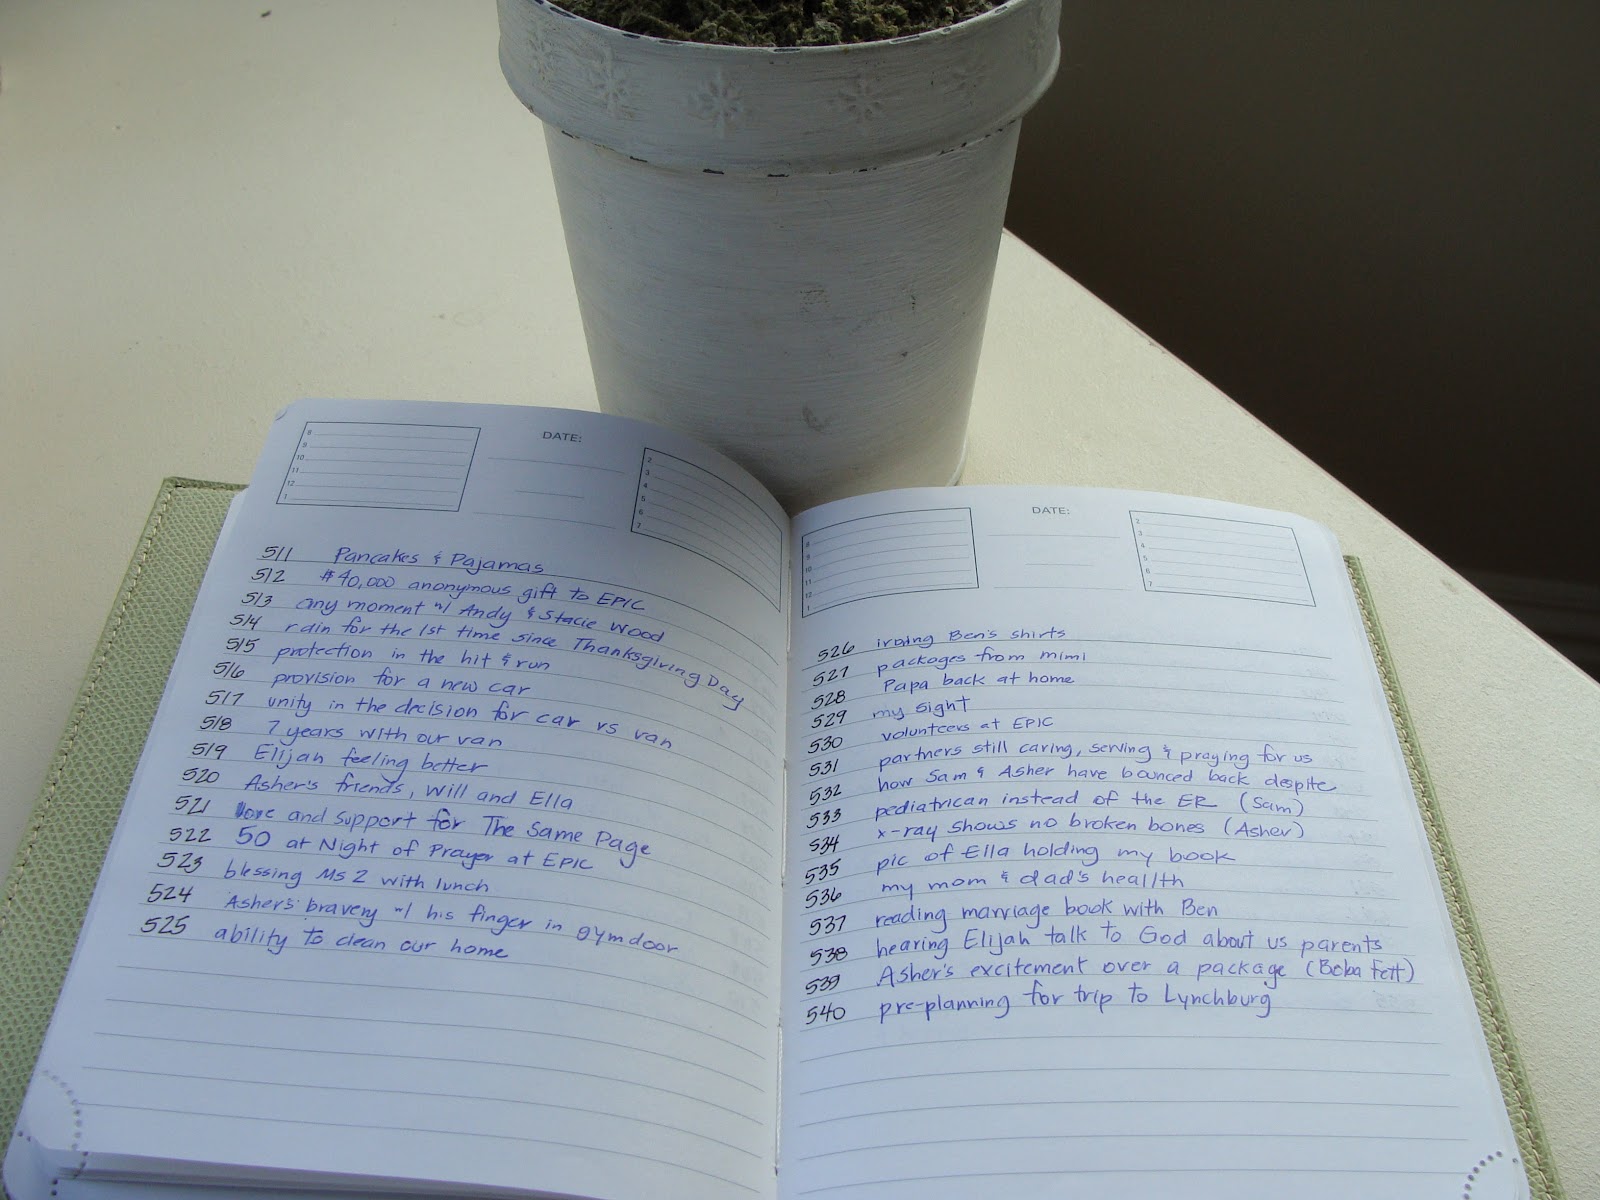 8
9
10
11
12
1
DATE:
2
3
4
5
6
7
511 Pancakes & Pajamas
512 $40,000 anonymous gift to EPIC
513 any moment w/ Andy & Stacie Wood
514 rain for the 1st time since Thanksgiving Day
515 protection in the hit & run
516 provision for a new car
517 unity in the decision for car vs van
518 7 years with our van
519 Elijah feeling better
520 Asher's friends, Will and Ella
521 love and support for The Same Page
522 50 at Night of Prayer at EPIC
523 blessing Ms Z with lunch
524 Asher's bravery w/ his finger in gym door
525 ability to clean our home
8
9
10
11
12
1
DATE:
2
3
4
5
6
7
526 ironing Ben's shirts
527 packages from mimi
528 Papa back at home
529 my sight
530 volunteers at EPIC
531 partners still caring, serving & praying for us
532 how Sam & Asher have bounced back despite
533 pediatrican instead of the ER (Sam)
534 x-ray shows no broken bones (Asher)
535 pic of Ella holding my book
536 my mom & dad's heallth
537 reading marriage book with Ben
538 hearing Elijah talk to God about us parents
539 Asher's excitement over a package (Boba Fett)
540 pre-planning for trip to Lynchburg